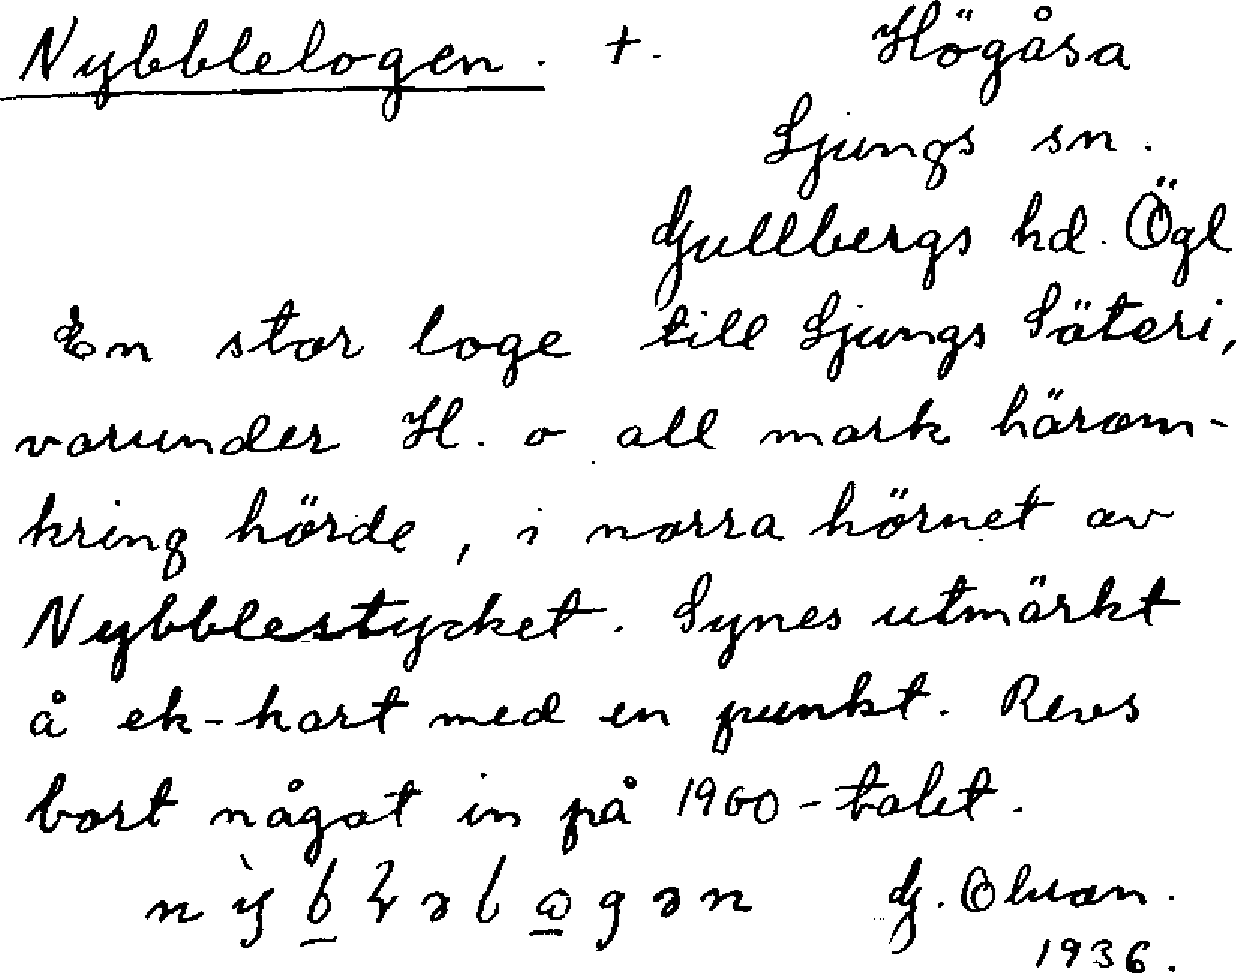 Nybblelogen. +. Högåsa
Ljungs sn.
Gullbergs hd. Ögl
En stor loge till Ljungs Säteri,
varunder H. o all mark härom-
kring hörde, i norra hörnet av
Nybblestycket. Synes utmärkt
å ek-kart med en punkt. Revs
bort något in på 1900-talet.
G. Olsson.
1936.